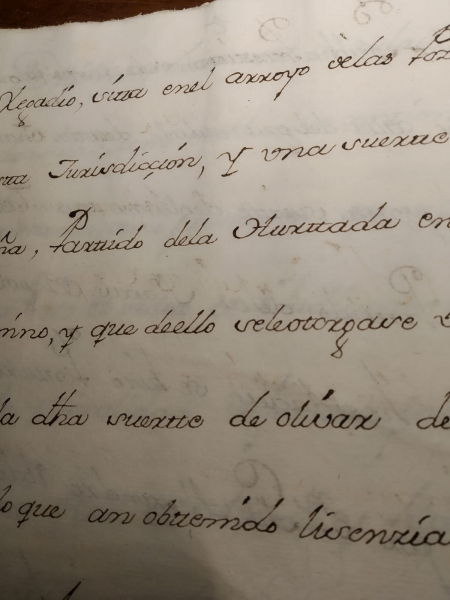 Regadío, sitta en el arroyo de las Poz
sta Jurisdicción, y una suertte
ña, Parttido de la Hurttada en
mino, y que de ello se le otorgase
la dha suertte de olivar de
lo que an obttenido lisenzia